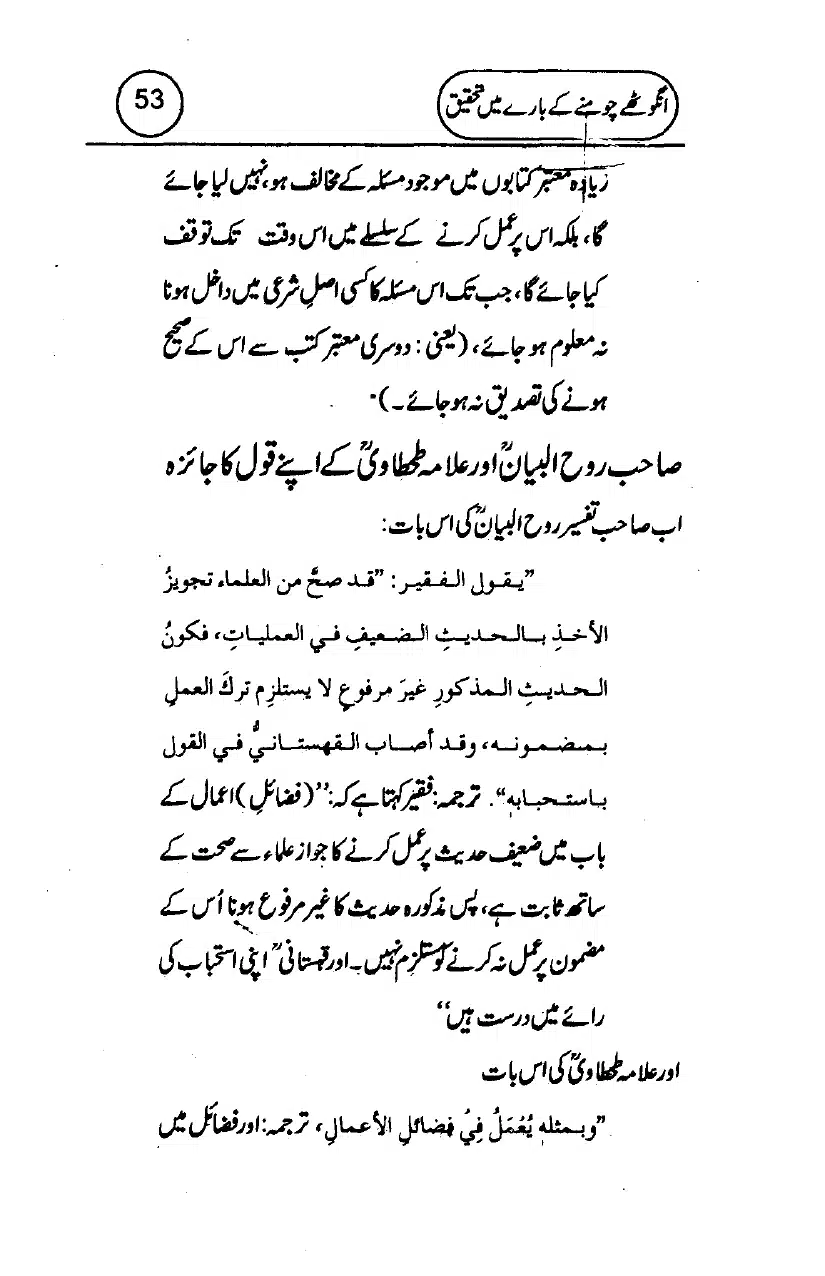 انگوٹھے چومنے کے بارے میں تحقیق
53
زیادہ معتبر کتابوں میں موجود مسئلہ کے مخالف ہو، نہیں لیا جائے
گا، بلکہ اس پر عمل کرنے کے سلسلے میں اس وقت تک توقف
کیا جائے گا، جب تک اس مسئلہ کا کسی اصلِ شرعی میں داخل ہونا
نہ معلوم ہو جائے، (یعنی: دوسری معتبر کتب سے اس کے صحیح
ہونے کی تصدیق نہ ہو جائے۔)
صاحب روح البیانؒ اور علامہ طحطاویؒ کے اپنے قول کا جائزہ
اب صاحب تفسیر روح البیانؒ کی اس بات:
”يقول الفقير: ”قد صحَّ من العلماء تجويزُ
الأخذِ بالحديثِ الضعيفِ في العملياتِ، فكونُ
الحديثِ المذكورِ غيرَ مرفوعٍ لا يستلزم تركَ العملِ
بمضمونه، وقد أصاب القهستانيُّ في القول
باستحبابهٖ“. ترجمہ: فقیر کہتا ہے کہ: ”(فضائلِ) اعمال کے
باب میں ضعیف حدیث پر عمل کرنے کا جواز علماء سے صحت کے
ساتھ ثابت ہے، پس مذکورہ حدیث کا غیر مرفوع ہونا اُس کے
مضمون پر عمل نہ کرنے کو مستلزم نہیں۔ اور قہستانیؒ اپنی استحباب کی
رائے میں درست ہیں“
اور علامہ طحطاویؒ کی اس بات
”وبمثلهٖ يُعْمَلُ فِيْ فضائلِ الأعمالِ، ترجمہ: اور فضائل میں